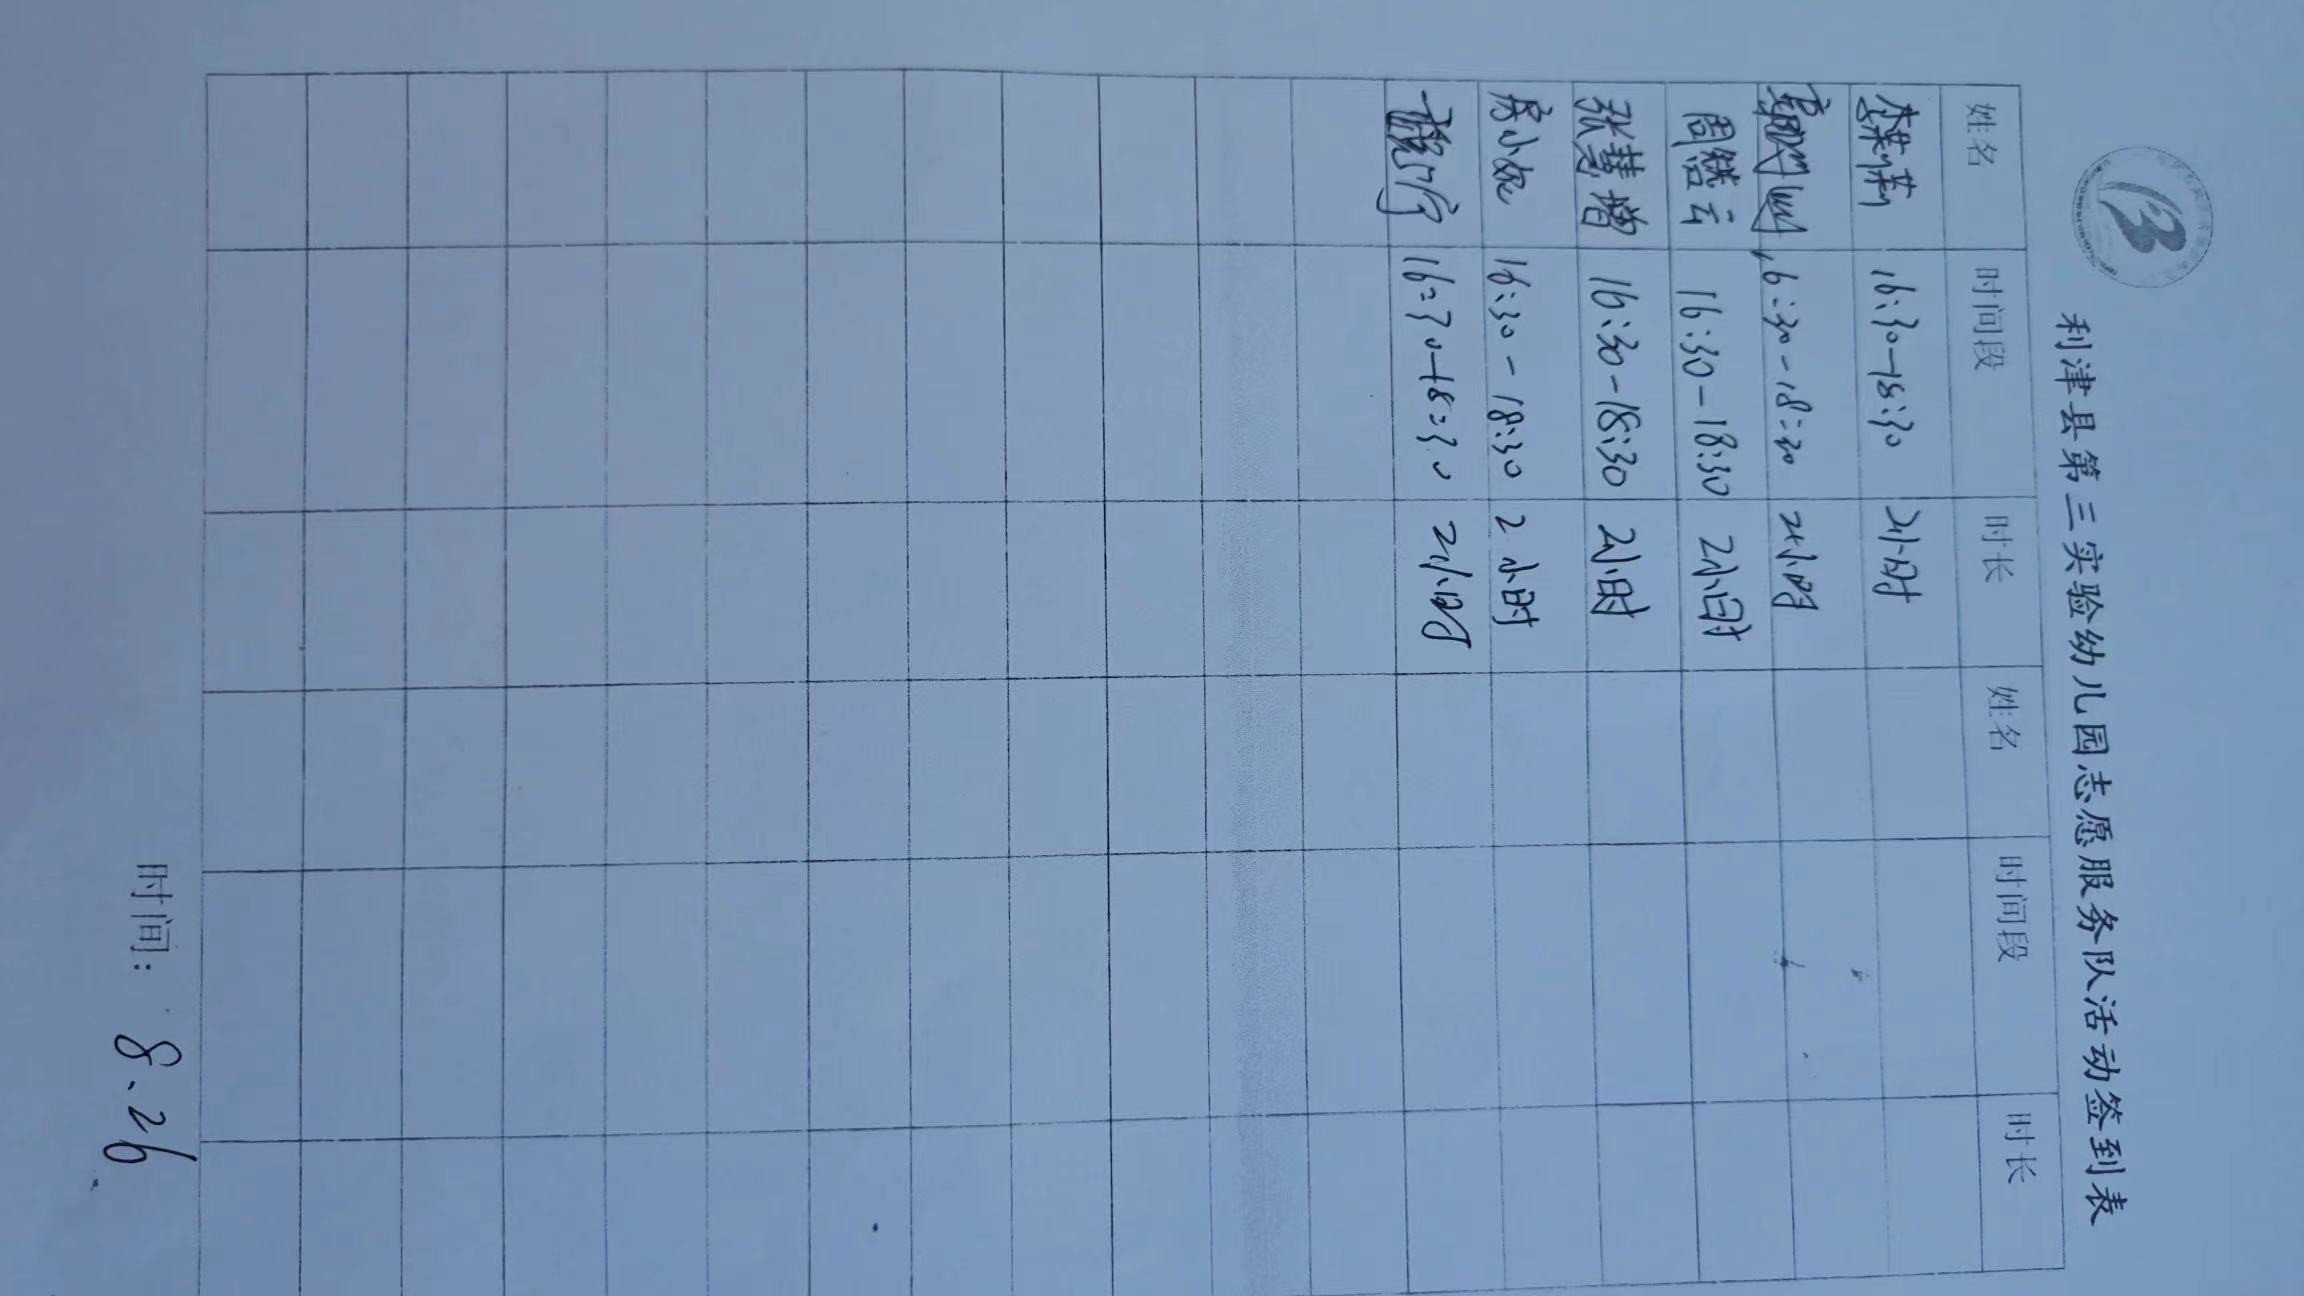 利津县第三实验幼儿园志愿服务队活动签到表
姓名 时间段 时长 姓名 时间段 时长
李莱莉 16:30-18:30 2小时
16:30-18:30 2小时
周继云 16:30-18:30 2小时
张慧增 16:30-18:30 2小时
房小妮 16:30-18:30 2小时
16:30-18:30 2小时
时间: 8.26